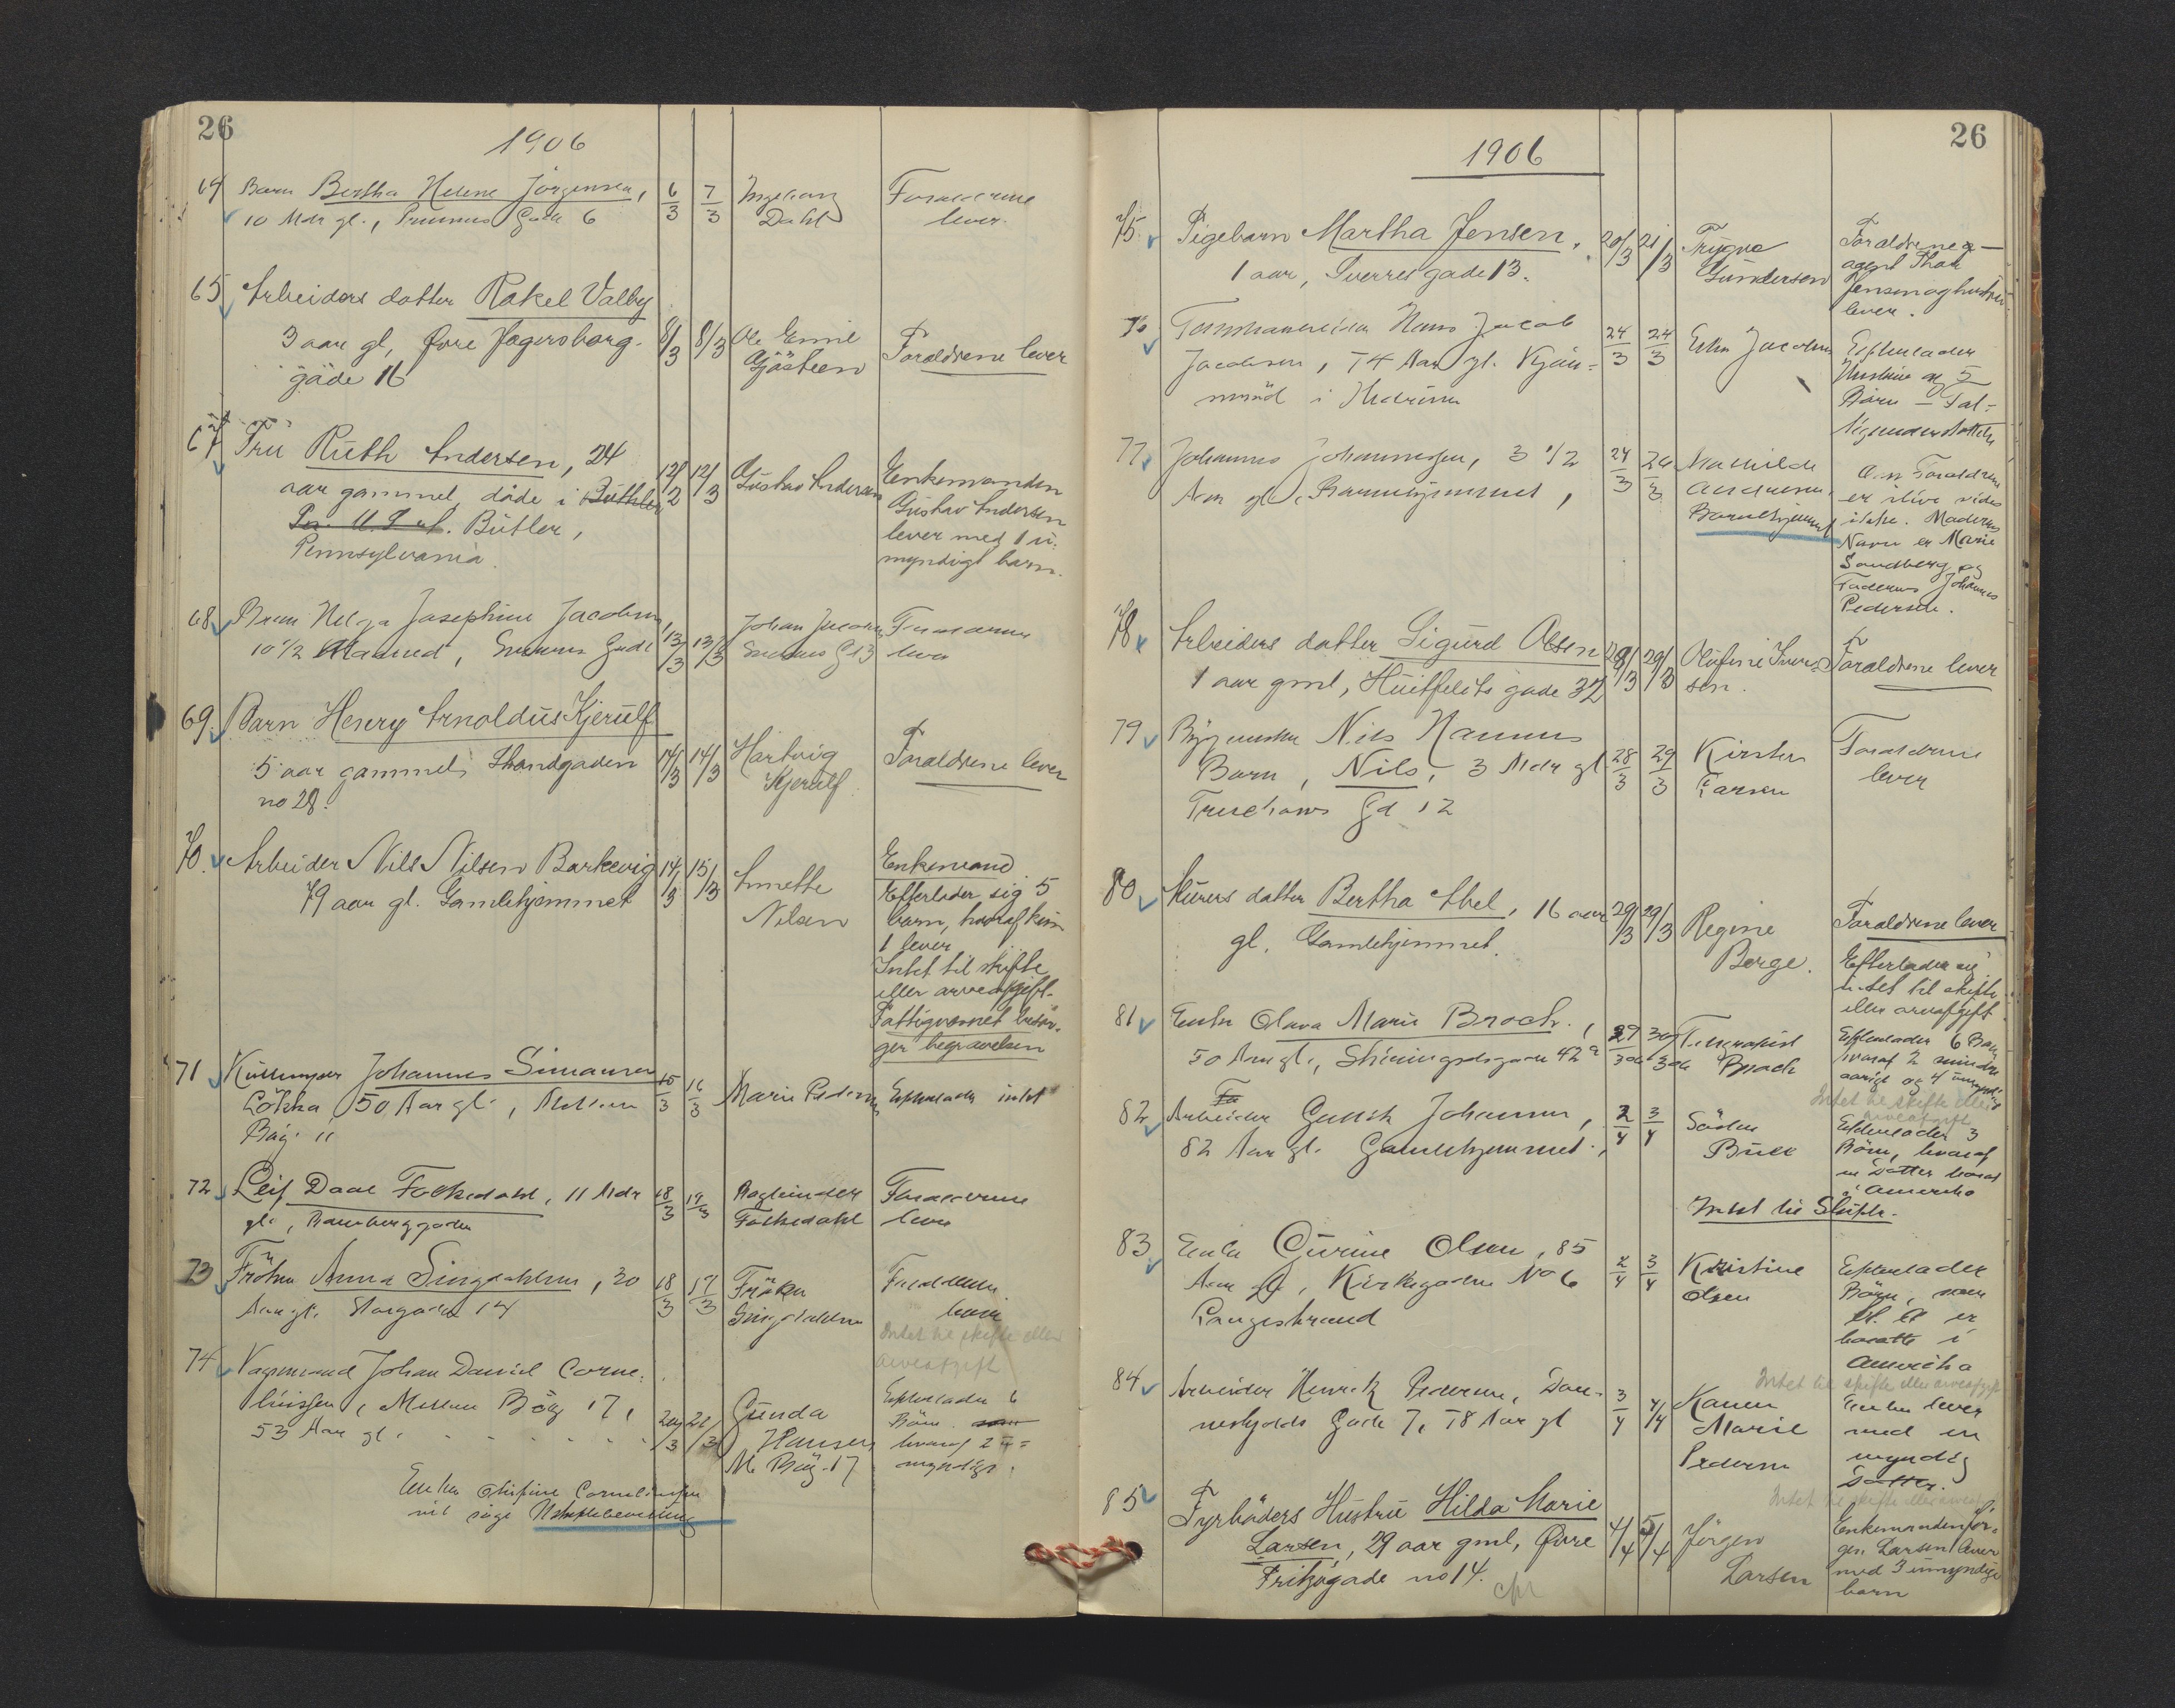 26
1906
64 Barn Bertha Helene Jörgensen, 6/3 7/3 Ingeborg Forældrene
10 Mdr gl., Gade 6 Dahl lever.
65 Arbeiders datter Rakel Valby
3 aar gl, Øvre Jegersborg- 8/3 8/3 Ole Emil Forældrene lever
gade 16 Gjøsteen
67 Fru Ruth Andersen, 24 12/2 12/3 Gustav Andersen Enkemanden
aar gammel, døde i Buthler Gustav Andersen
Pa. U.S.A. Butler, lever med 1 u-
Pennsylvania. myndigt barn.
68 Barn Helga Josephine Jacobsen, 13/3 13/3 Johan Jacobsen Forældrene
10 1/2 Maaned, Gade G 13 lever
69. Barn Henry Arnoldus Kjerulf
5 aar gammel, Strandgaden 14/3 14/3 Hartvig Forældrene lever
no 28. Kjerulf
70. Arbeider Nils Nilsen Barkevig 14/3 15/3 Annette Enkemand
79 aar gl. Gamlehjemmet Nilsen Efterlader sig 5
barn, hvoraf kun
1 lever
Intet til skifte
eller arveafgift.
Fattigvæsnet besör-
ger begravelsen
71 Johannes Simonsen 15/3 16/3 Marie Pedersen Efterlader intet
Løkka 50 Aar gl., Mellem
Bög. 11
72 Leif Daae Folkedahl, 11 Mdr 18/3 19/3 Bogbinder Forældrene
gl., Folkedahl lever
73 Fröken Anna Singdahlsen, 30 18/3 19/3 Fröken Forældrene
Aar gl. Storgaden 14 Singdahlsen lever
Intet til skifte eller
arveafgift
74 Vognmand Johan Daniel Corne-
liussen, Mellem Bög 17, 20/3 21/3 Gunda Efterlader 6
53 Aar gl. Hansen Börn
M. Bög. 17 hvoraf 2 u-
myndige.
Enken Corneliussen
vil söge Uskiftebevilling
26
1906
75 Pigebarn Martha Jensen, 20/3 21/3 Trygve Forældrene
1 aar, Sverres gade 13. Gundersen agent Thor
Jensen og hustru
lever.
76 Hans Jacob 24/3 24/3 Jacobsen Efterlader
Jacobsen, 74 Aar gl. Hustru og 5
i Hedrum Börn - Fat-
tigunderstöttelse
77 Johannes Johannessen, 3 1/2 24/3 26/3 Mathilde Om Forældrene
Aar gl. Barnehjemmet, Andersen, er ilive vides
Barnehjemmet ikke. Moderens
Navn er Marie
Sandberg og
Faderens Johannes
Pedersen.
78 Arbeiders datter Sigurd Olsen 28/3 29/3 Olufine Iver- Forældrene lever
1 aar gml, Huitfelts gade 32 sen.
79 Bygmester Nils Hannes
Barn, Nils, 3 Mdr gl 28/3 29/3 Kirsten Forældrene
Treschows Gd 12 Larsen lever
80 Murers datter Bertha Abel, 16 aar 29/3 29/3 Regine Forældrene lever
gl. Gamlehjemmet. Berge. Efterlader sig
intet til skifte
eller arveafgift.
81 Enke Olava Marie Broch., 29/3 30/3 Telegrafist Efterlader 6 Börn
50 Aar gl., gade 42 a Broch hvoraf 2 mindre
aarige og 4 umyndige
Intet til skifte eller
arveafgift
82 Arbeider Johannsen, 2/4 3/4 Söster Efterlader 3
82 Aar gl. Gamlehjemmet. Bull Börn, hvoraf
en Datter bosat
i Amerika
Intet til Skifte.
83 Enke Gurine Olsen, 85 2/4 3/4 Kristine Efterlader
Aar gl, Kirkegaden No 6 Olsen Börn, som
Langestrand er
bosatte i
Amerika
Intet til skifte eller arveafgift
84 Arbeider Henrik Pedersen, Dan- 3/4 4/4 Karen Enken lever
neskjolds Gade 7, 78 Aar gl Marie med en
Pedersen myndig
Datter.
Intet til skifte eller arveafgift
85 Fyrböders Hustru Hilda Marie 4/4 5/4 Jörgen Enkemanden Jör-
Larsen, 29 aar gml, Øvre Larsen gen Larsen lever
Fritzøgade no 14. med 3 umyndige
barn